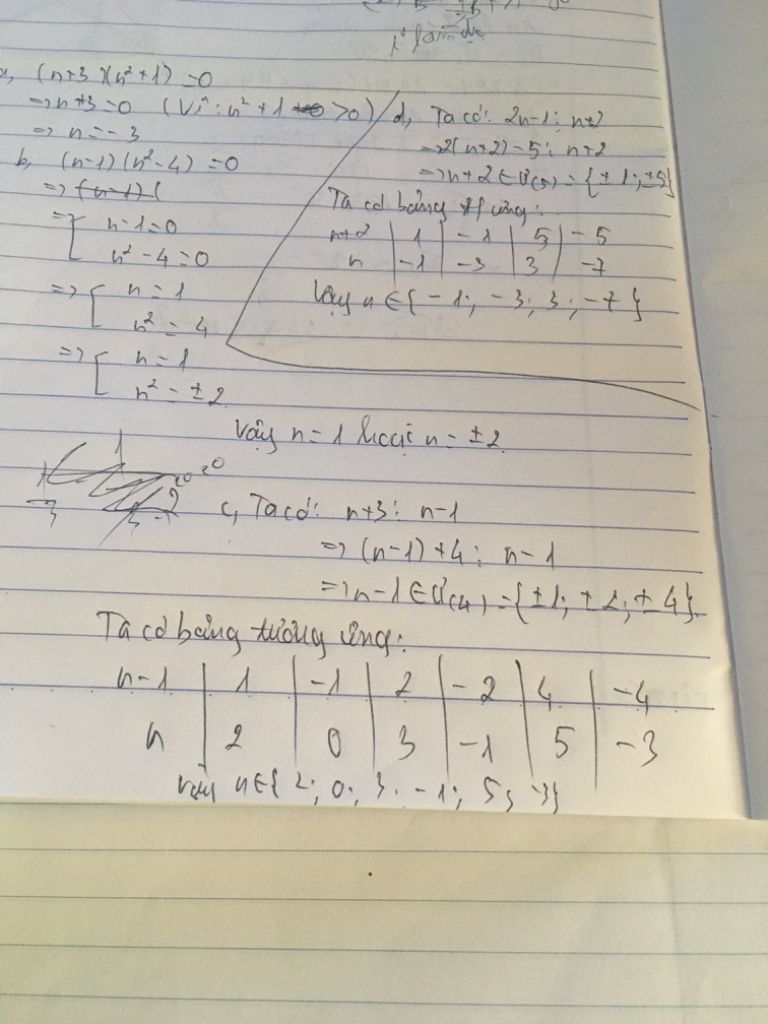 a, (n+3)(n²+1)=0
=> n+3=0 (Vì: n²+1 >0)
=> n=-3
b, (n-1)(n²-4)=0
=> (n-1)(
=> [ n-1=0
n²-4=0
=> [ n=1
n²=4
=> [ n=1
n²=±2
Vậy n=1 hoặc n=±2
d, Ta có: 2n-1⋮n+2
=> 2(n+2)-5⋮n+2
=> n+2∈Ư(5)={±1;±5}
Ta có bảng tứ ứng:
n+2 | 1 | -1 | 5 | -5
n | -1 | -3 | 3 | -7
Vậy n∈{-1; -3; 3; -7}
c, Ta có: n+3⋮n-1
=> (n-1)+4⋮n-1
=> n-1∈Ư(4)={±1; ±2; ±4}
Ta có bảng tương ứng:
n-1 | 1 | -1 | 2 | -2 | 4 | -4
n | 2 | 0 | 3 | -1 | 5 | -3
Vậy n∈{2; 0; 3; -1; 5; -3}